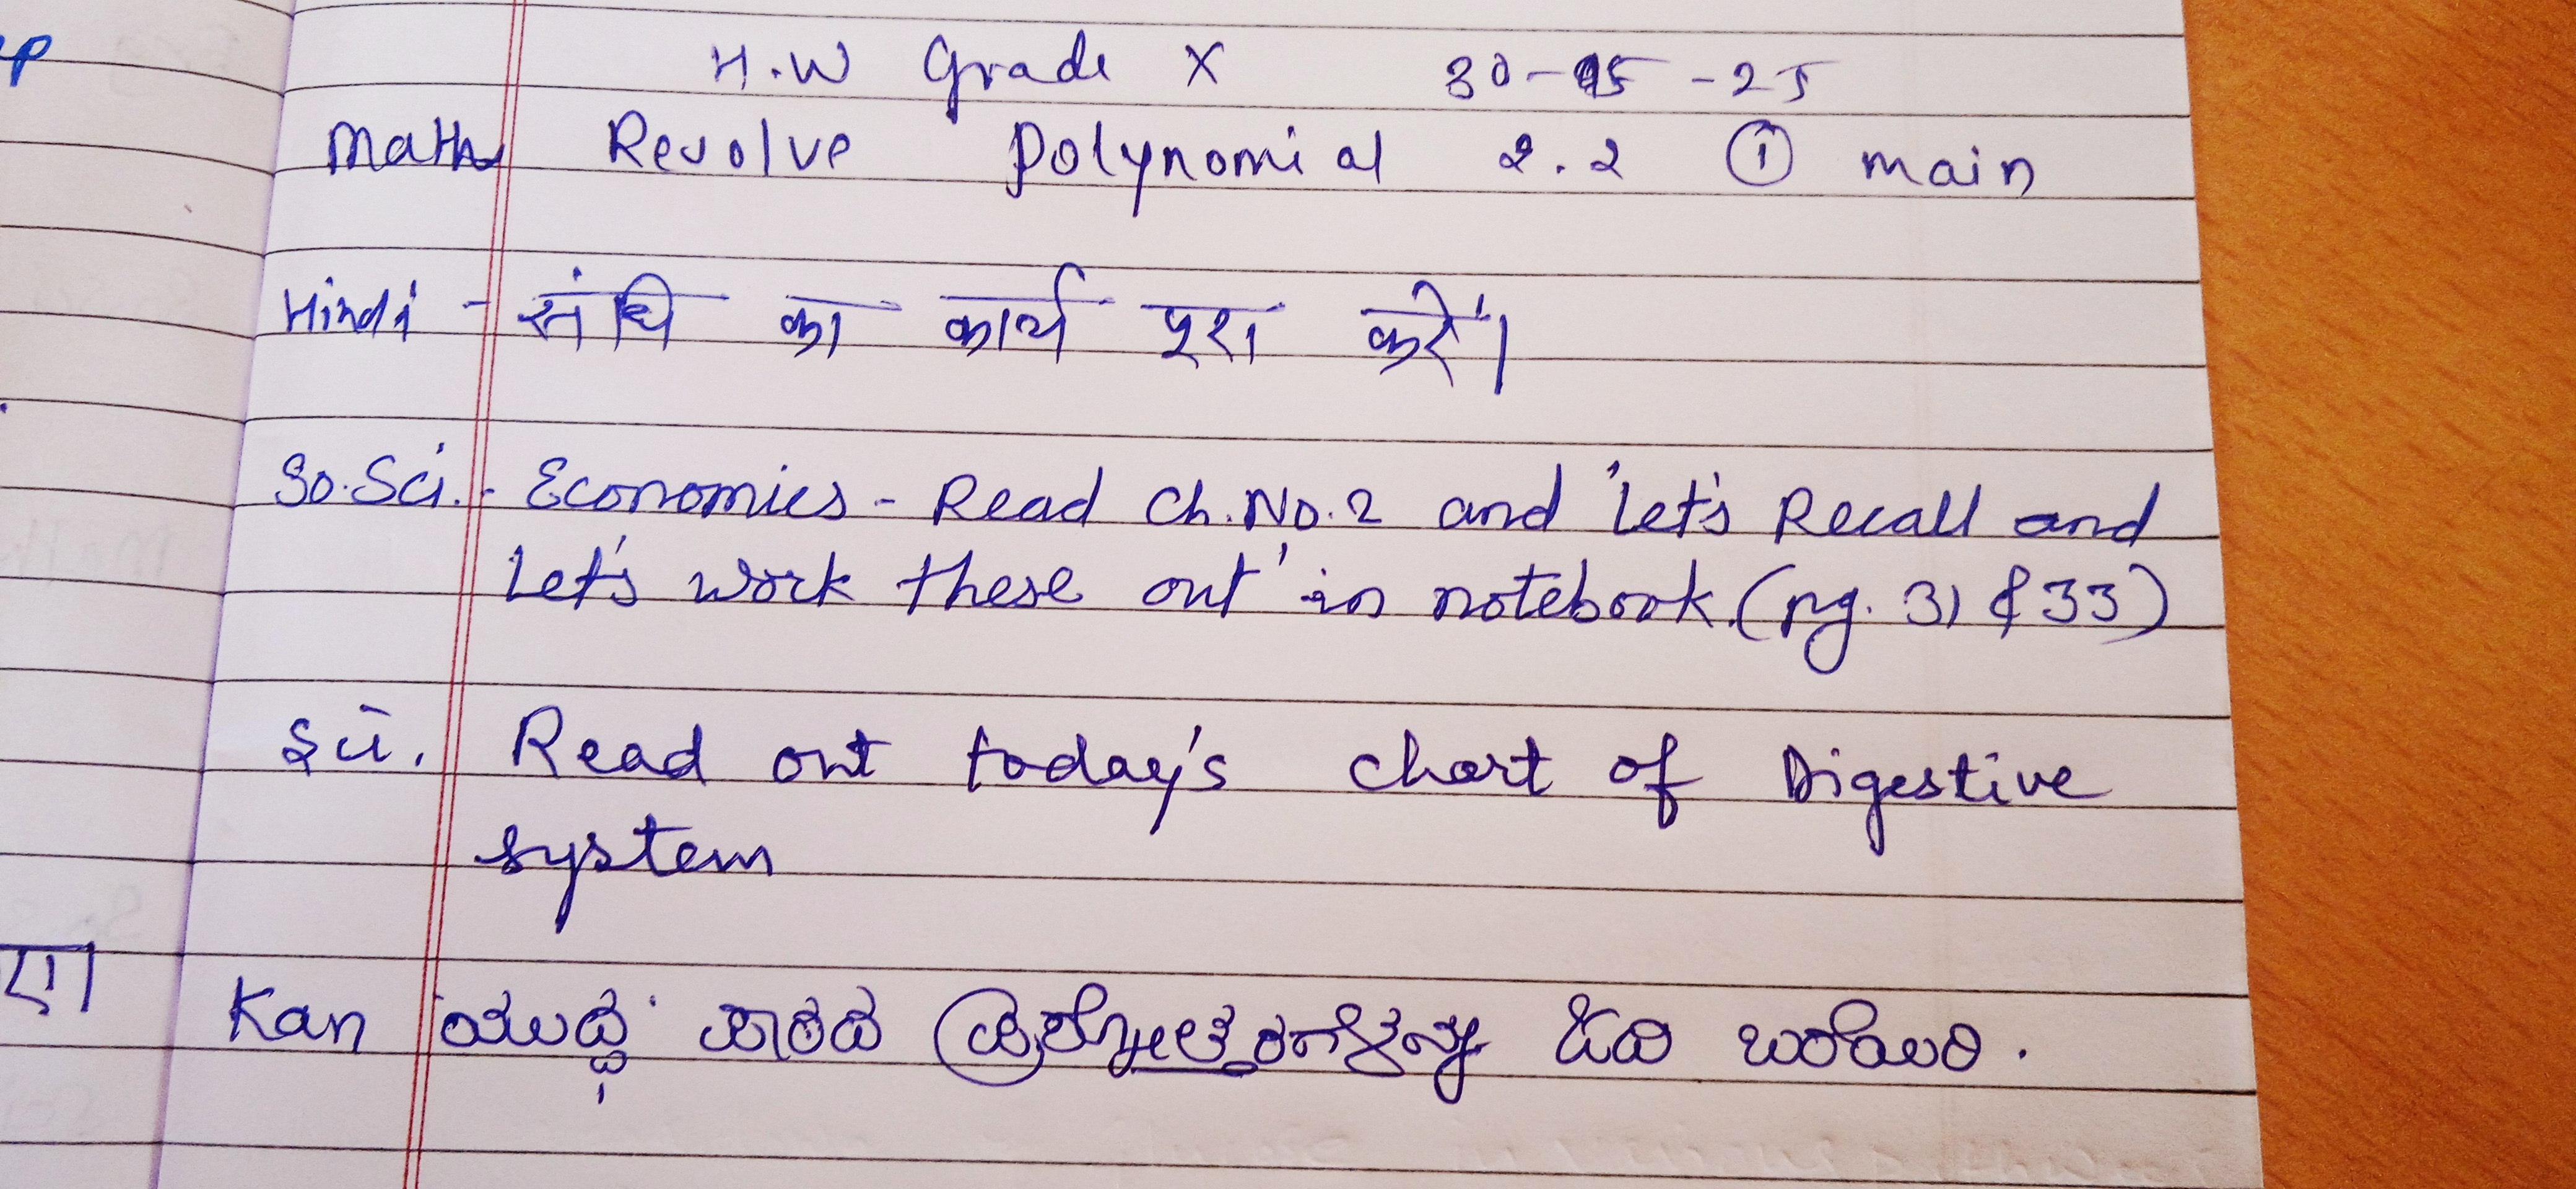 H.W Grade X 30-05-25
Math Revolve Polynomial 2.2 ① main
Hindi - संधि का कार्य पूरा करें।
So.Sci. - Economics - Read Ch.No.2 and 'Let's Recall and
Let's work these out' in notebook.(pg. 31 & 33)
Sci. Read out today's chart of Digestive
system
Kan 'ಯುದ್ಧ' ಪಾಠದ ಪ್ರಶ್ನೋತ್ತರಗಳನ್ನು ಓದಿ ಬರೆಯಿರಿ.